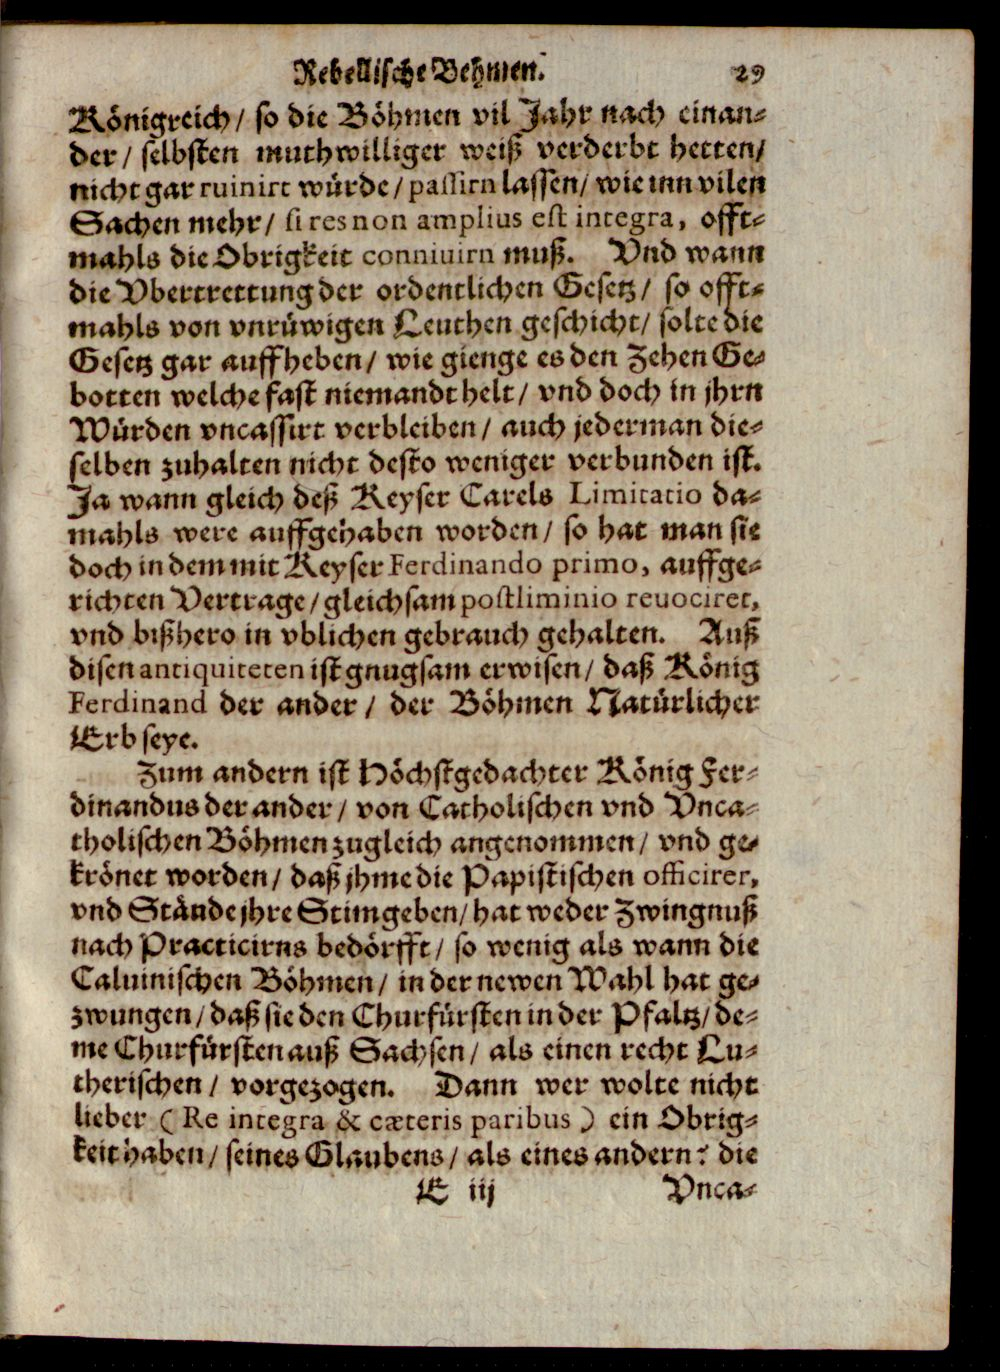 Rebellische Behmen. 29
Königreich / so die Böhmen vil Jahr nach einan-
der / selbsten muthwilliger weiß verderbt hetten /
nicht gar ruinirt würde / passirn lassen / wie inn vilen
Sachen mehr / si res non amplius est integra, offt-
mahls die Obrigkeit conniuirn muß. Vnd wann
die Vbertrettung der ordentlichen Gesetz / so offt-
mahls von vnrüwigen Leuthen geschicht / solte die
Gesetz gar auffheben / wie gienge es den Zehen Ge-
botten welche fast niemandt helt / vnd doch in jhrn
Würden vncassirt verbleiben / auch jederman die-
selben zuhalten nicht desto weniger verbunden ist.
Ja wann gleich deß Keyser Carels Limitatio da-
mahls were auffgehaben worden / so hat man sie
doch in dem mit Keyser Ferdinando primo, auffge-
richten Vertrage / gleichsam postliminio reuociret,
vnd bißhero in vblichen gebrauch gehalten. Auß
disen antiquiteten ist gnugsam erwisen / daß König
Ferdinand der ander / der Böhmen Natürlicher
Erb seye.
Zum andern ist Höchstgedachter König Fer-
dinandus der ander / von Catholischen vnd Vnca-
tholischen Böhmen zugleich angenommen / vnd ge-
krönet worden / daß jhme die Papistischen officirer,
vnd Stände jhre Stim geben / hat weder Zwingnuß
nach Practicirns bedörfft / so wenig als wann die
Caluinischen Böhmen / in der newen Wahl hat ge-
zwungen / daß sie den Churfürsten in der Pfaltz / de-
me Churfürsten auß Sachsen / als einen recht Lu-
therischen / vorgezogen. Dann wer wolte nicht
lieber ( Re integra & cæteris paribus ) ein Obrig-
keit haben / seines Glaubens / als eines andern? die
E iij Vnca-